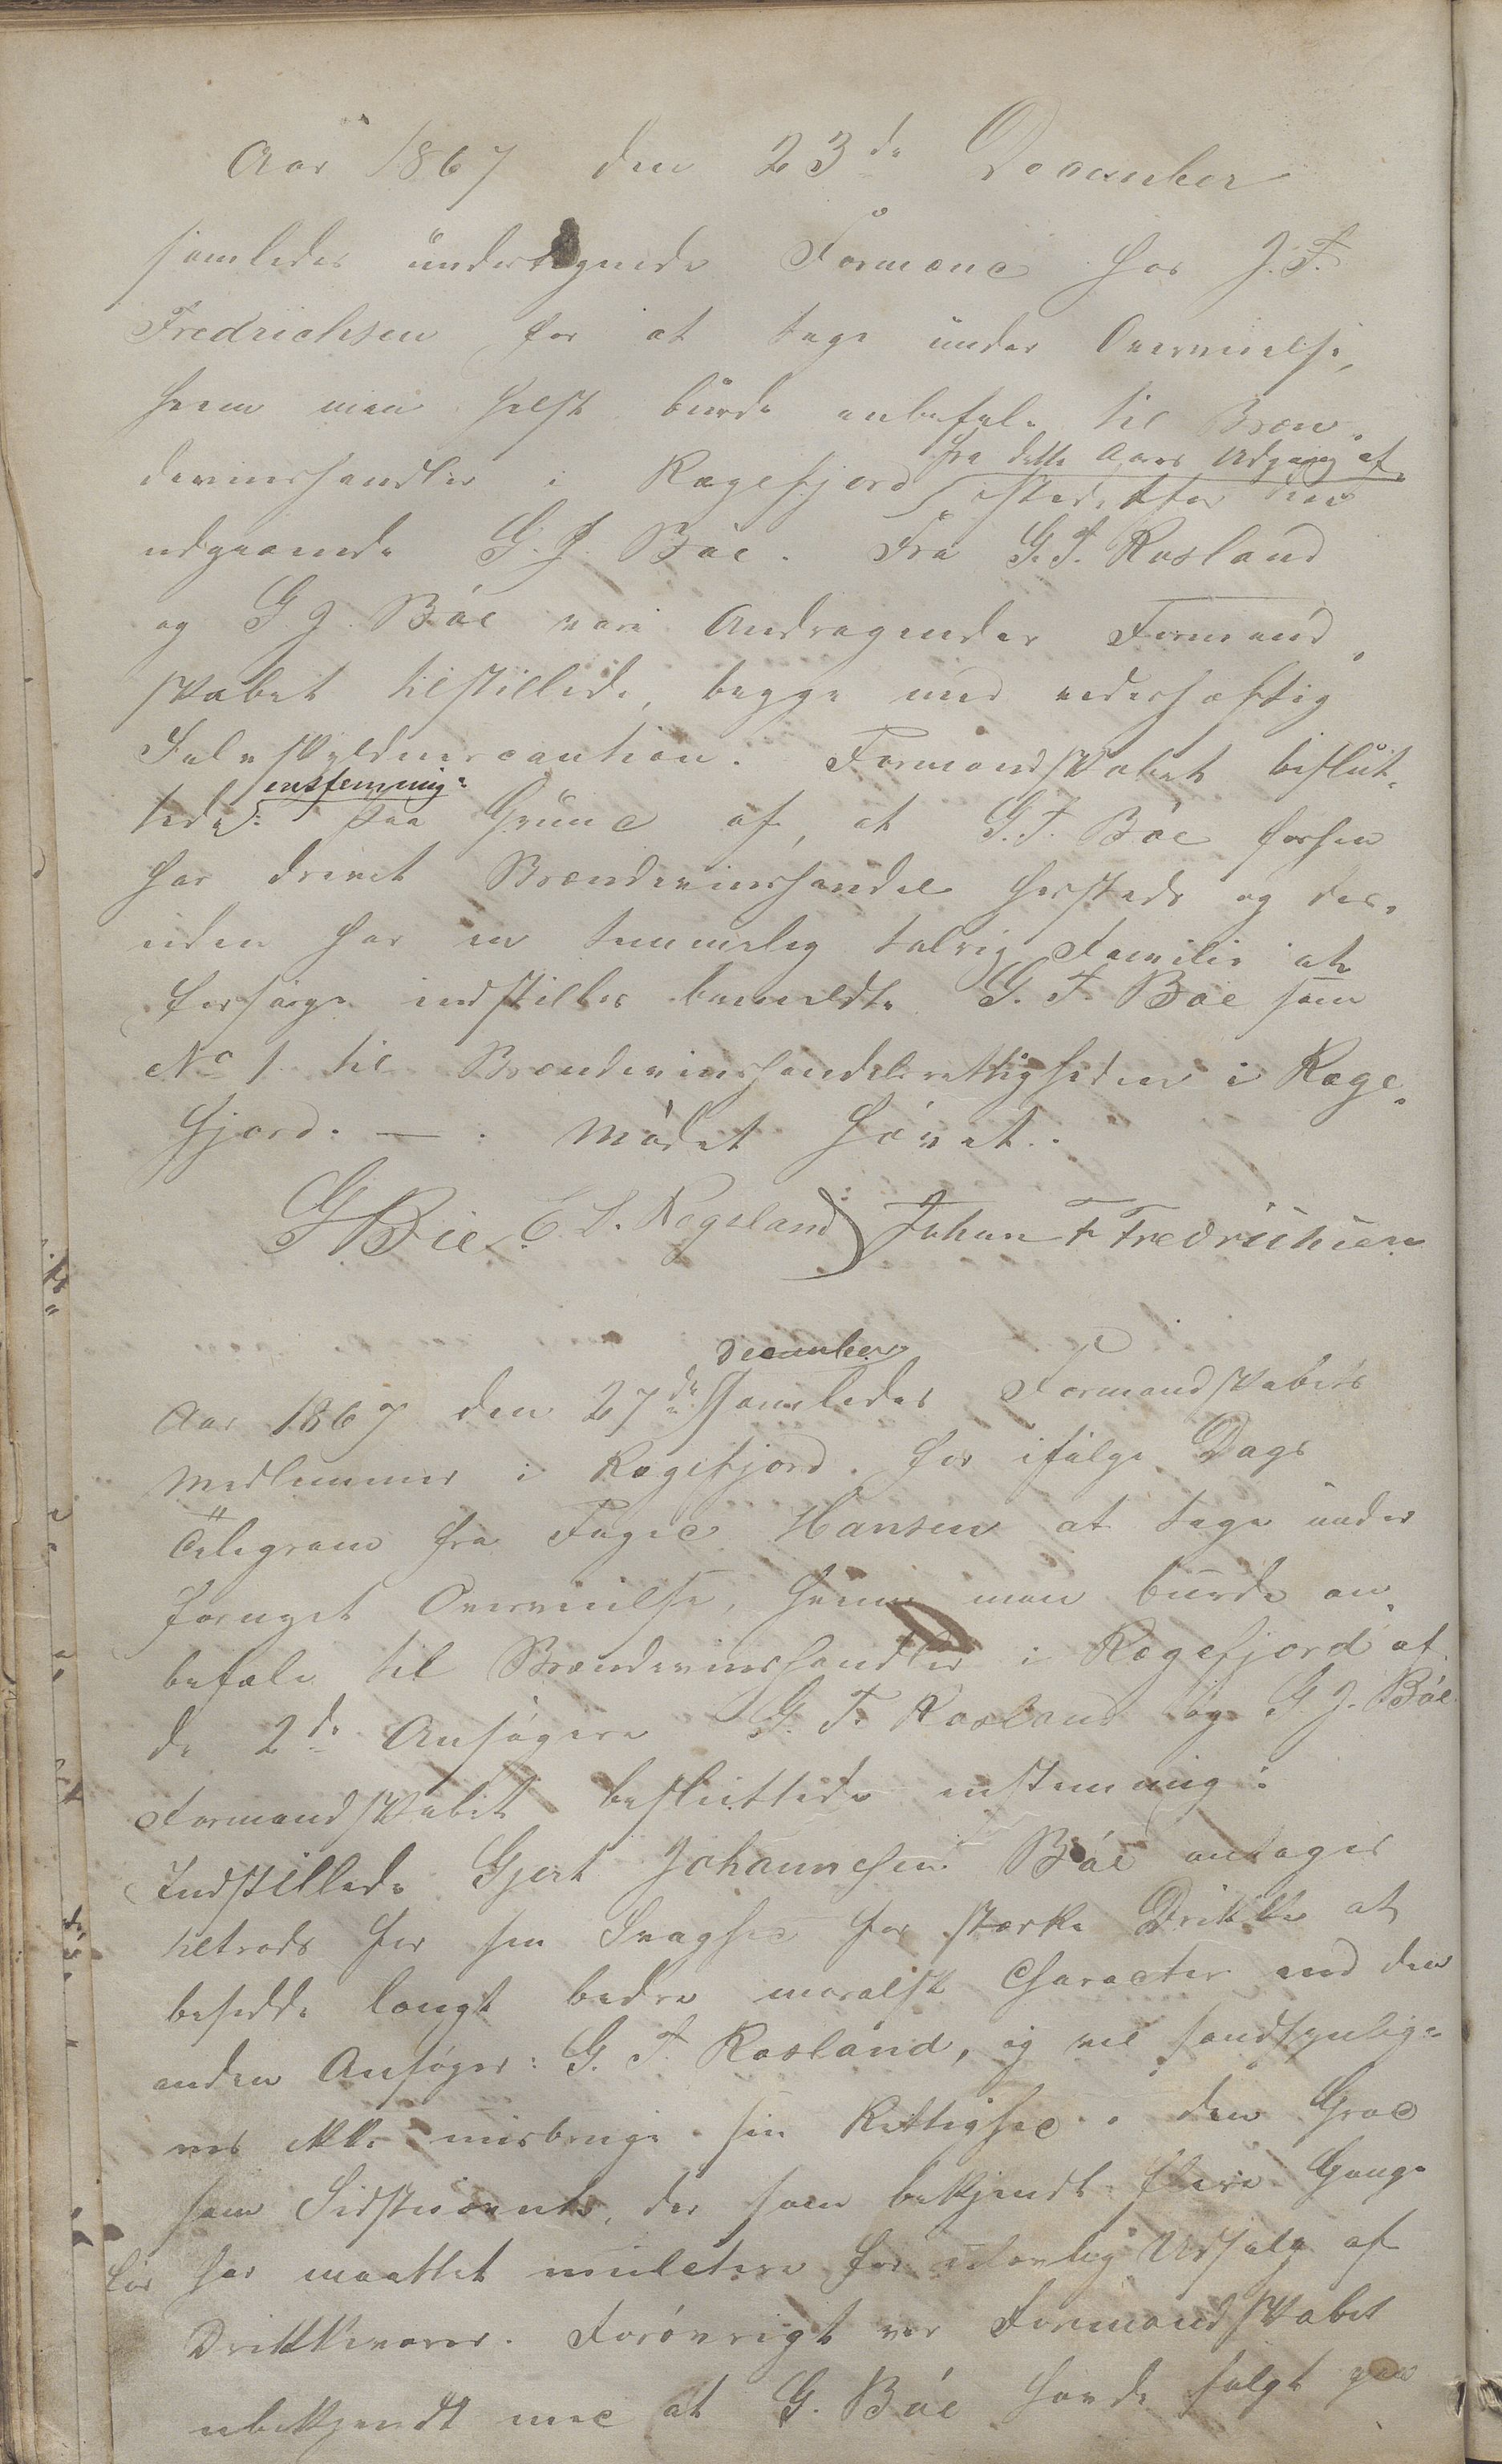 Aar 1867 den 23de December
samledes undertegnede Formænd hos J. F.
Fredrichsen for at tage under Overveielse,
hvem man helst burde anbefale til Bræn-
devinshandler i Rægefjord fra dette Aars Udgang af
istedetfor den
udgaaende G. J. Bøe. Fra G. T. Rosland
og G. J. Bøe vare Andragender Formand-
skabet tilstillede, begge med vederhæftig
Selvskyldnercaution. Formandskabet beslut-
tede enstemmig: Paa Grund af, at G. J. Bøe forhen
har drevet Brændevinshandel hersteds og des-
uden har en temmelig talrig Familie at
forsørge indstilles bemeldte G. J. Bøe som
No 1 til Brændevinshandelsrettigheden i Ræge-
fjord. — . Mødet hævet.
G Bie E L. Regeland Johan F Fredrichsen
December
Aar 1867 den 27de samledes Formandskabets
Medlemmer i Rægefjord for ifølge Dags
Telegram fra Foged Hansen at tage under
fornyet Overveielse, hvem man burde an-
befale til Brændevinshandler i Rægefjord af
de 2de Ansøgere G. T. Rosland og G. J. Bøe.
Formandskabet besluttede enstemmig:
Indstillede Gjert Johannesen Bøe antages
tiltrods for sin Svaghed for stærke Drikke at
besidde langt bedre moralsk Character end den
anden Ansøger: G. T. Rosland, og vil sandsynlig-
vis ikke misbruge sin Rettighed i den Grad
som Sidstnævnte, der som bekjendt flere Gange
før har maattet mulctere for ulovlig Udsalg af
Drikkevarer. Forøvrigt var Formandskabet
ubekjendt med at G. Bøe havde solgt